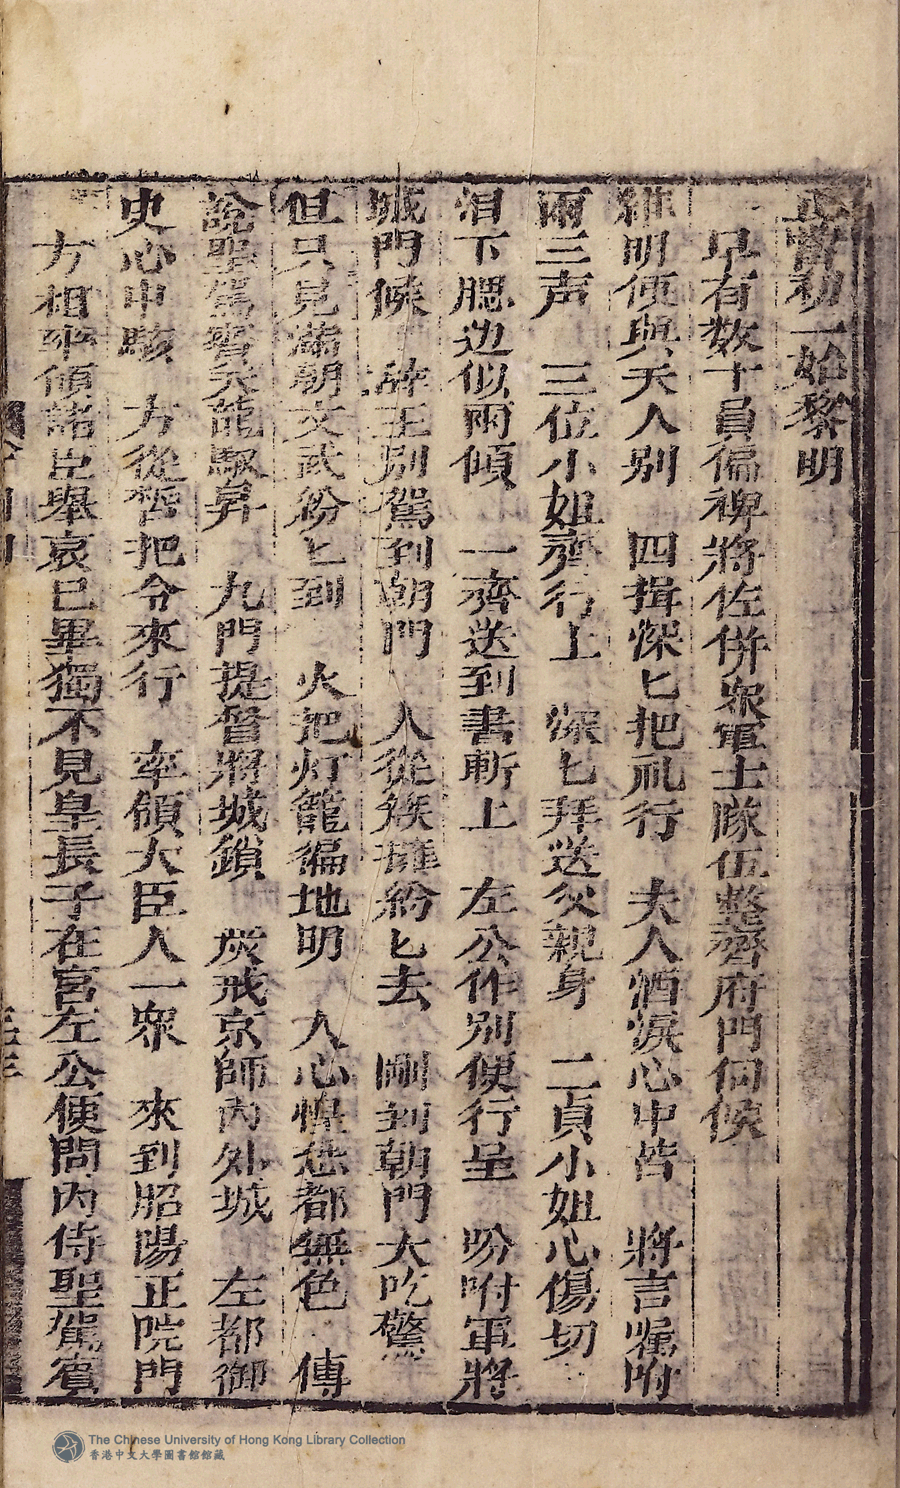 正當初一始黎明
早有数十員偏裨將佐併衆軍士隊伍整齊府門伺候
維明便與夫人别　四揖深匕把礼行　夫人洒淚心中苦　將言嘱咐
兩三声　三位小姐齊行上　深匕拜送父親身　二貞小姐心傷切
泪下腮边似雨傾　一齊送到書斬上　左公作别便行呈　吩咐軍將
城門候　辞王别駕到朝門　人從簇擁紛匕去　剛到朝門大吃驚
但只見滿朝文武紛匕到　火把灯籠徧地明　人心惶惶都無色　傳
說聖駕賓天龍馭昇　九門提督將城鎖　炭戒京師內外城　左都御
史心中駭　方從哲把令來行　率領大臣人一衆　來到昭陽正院門
方相率領諸臣舉哀已畢獨不見皇長子在宮左公便問內侍聖駕賓
The Chinese University of Hong Kong Library Collection
香港中文大學圖書館館藏